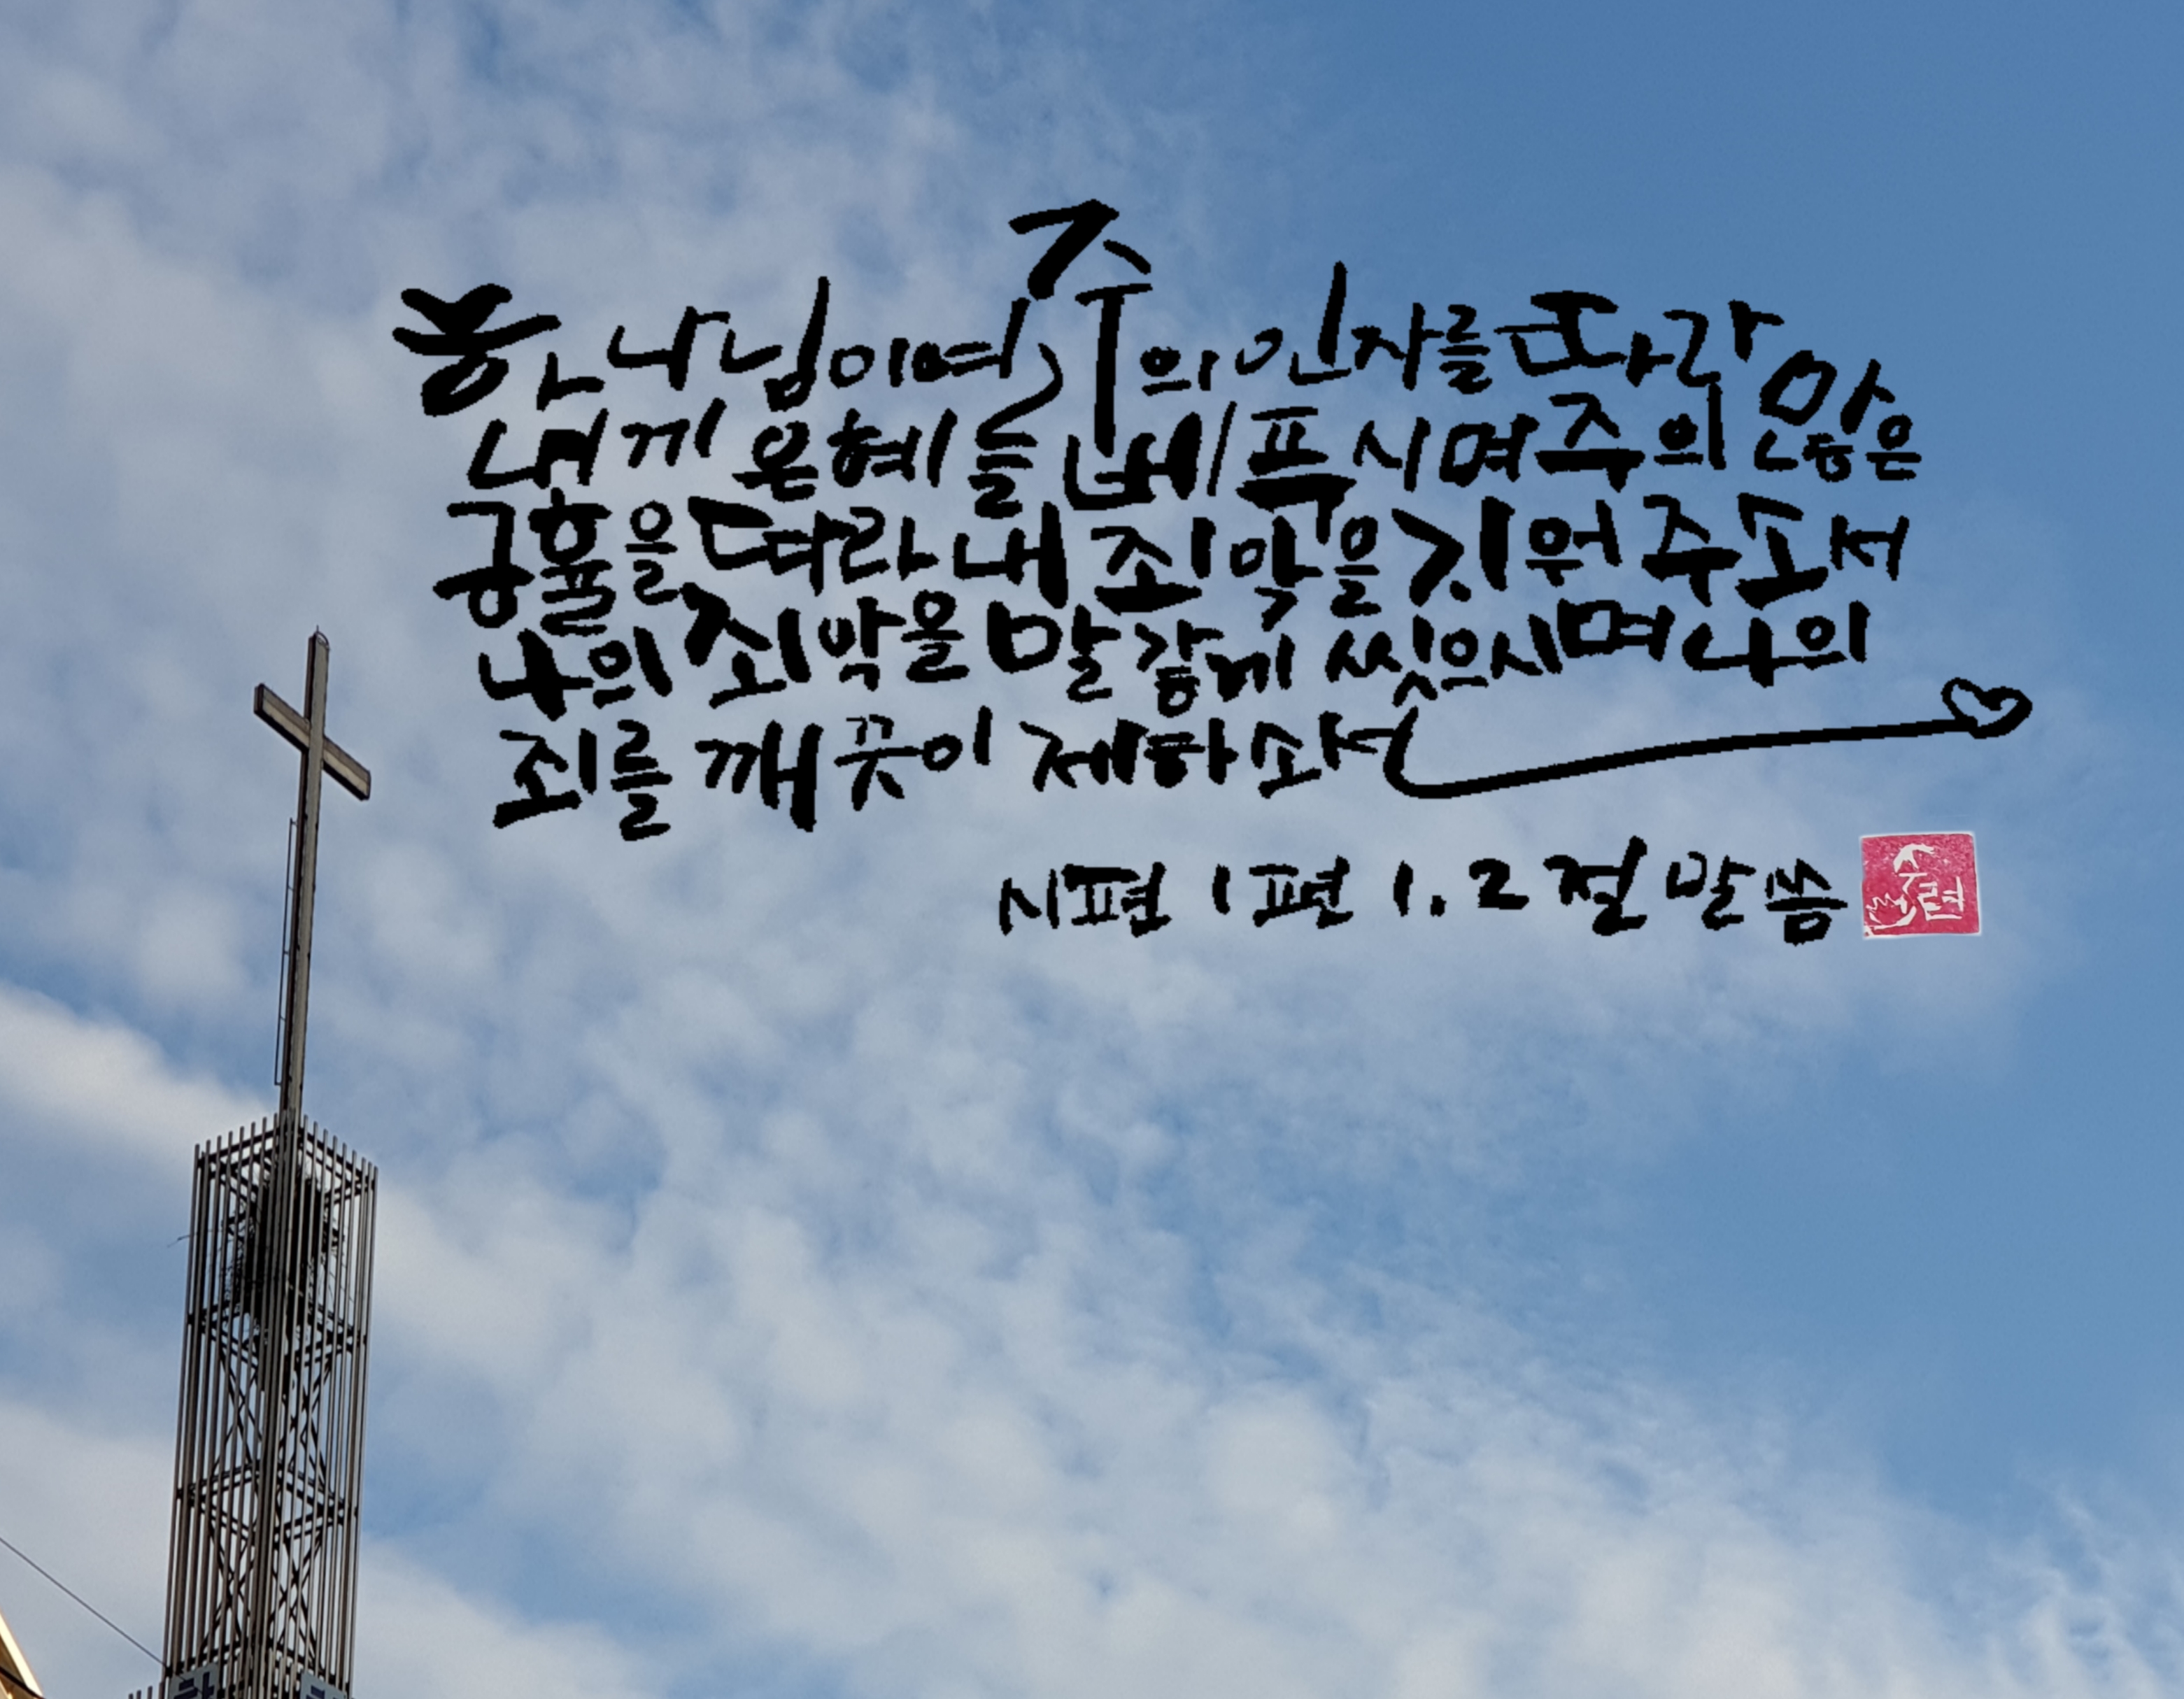 하나님이여 주의 인자를 따라
내게 은혜를 베푸시며 주의 많은
긍휼을 따라 내 죄악을 지워 주소서
나의 죄악을 말갛게 씻으시며 나의
죄를 깨끗이 제하소서
시편 1편 1.2절 말씀